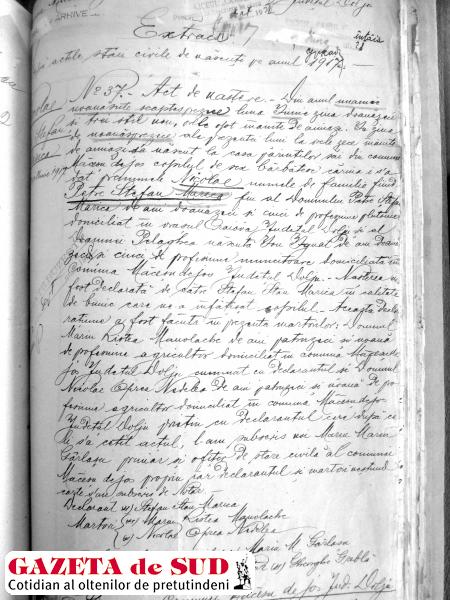 ARHIVE
Județul Dolj
Extract
întâia
după actele stări civile de născuți pe anul 1917
No 37.- Act de nastere.- Din anul una mie
nouă sute șaptesprezece luna Iunie ziua douăzeci
și trei stil nou, ora opt înainte de amiază. In ziua
de nouăsprezece ale prezentei luni la orele zece înainte
de amiază s'a născut la casa părintilor săi din comuna
Măceșu de jos copilul de sex bărbătesc căruia i s'a
dat prenumele Nicolae numele de familie fiind
Petre Stefan Marica fiu al Domnului Petre Stefan
Marica de ani douăzeci și cinci de profesiune plutonier
domiciliat în orașul Craiova Județul Dolj și al
Doamnei Pelaghea născută Ion Ignat de ani două
zeci și cinci de profesiune muncitoare domiciliată în
Comuna Măceșu de jos Județul Dolj.- Nasterea a
fost declarată de către Stefan Stan Marica în calitate
de bunic care ne-a înfățișat copilul.- Această decla
ratiune a fost făcută în prezenta martorilor: Domnul
Marin Kostea Manolache de ani patruzeci și nouă
de profesiune agricultor domiciliat în comuna Măceșu de
jos Județul Dolj cumnat cu declarantul și Domnul
Nicolae Oprea Nedelea de ani patruzeci și nouă de pro
fesiune agricultor domiciliat în comuna Măceșu de jos
Județul Dolj prieten cu declarantul care după ce
li s'a cetit actul, l'am subscris noi Marin Marin
Gârlașu primar și ofițer de stare civilă al comunei
Măceșu de jos propriu iar declarantul și martorii neștiind
carte s'au subscris de Notar.
Declarant ss) Stefan Stan Marica
Martori (ss) Marin Kostea Manolache
(ss) Nicolae Oprea Nedelea
Marin M. Gârlașu
Gheorghe
de jos Jud. Dolj
GAZETA de SUD
Cotidian al oltenilor de pretutindeni